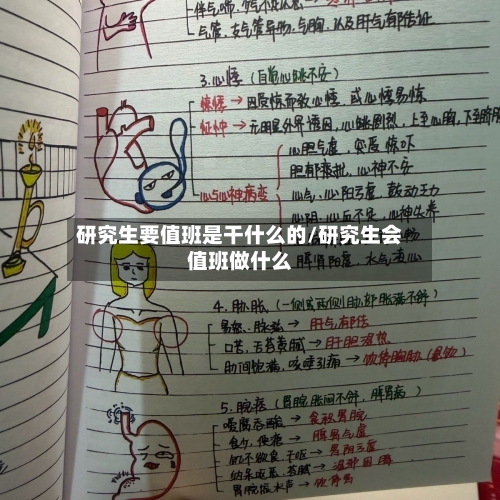 伴气喘
气管、支气管异物、气胸、以及肝气郁结证
3.心悸（自觉心跳不安）
惊悸→因受惊而致心悸，或心悸易惊
怔忡→无明显外界诱因，心跳剧烈，上至心胸，下至脐腹
心胆气虚，突受惊吓
胆郁痰扰，心神不安
心与心神病变
心气、心阳亏虚，鼓动乏力
心神失养
研究生要值班是干什么的/研究生会
值班做什么
脾肾阳虚，水气凌心
4.胁胀（一侧或两侧胁部胀满不舒）
易怒、脉弦→肝气郁结
口苦，舌苔黄腻→肝胆湿热
肋间饱满，咳唾引痛→饮停胸胁（悬饮）
5.脘痞（胃脘胀闷不舒，脾胃病）
嗳腐吞酸→食积胃脘
食少，便溏→脾胃气虚
饥不欲食，干呕→胃阴亏虚
纳呆呕恶，苔腻→湿邪困脾
胃脘振水声→饮停胃